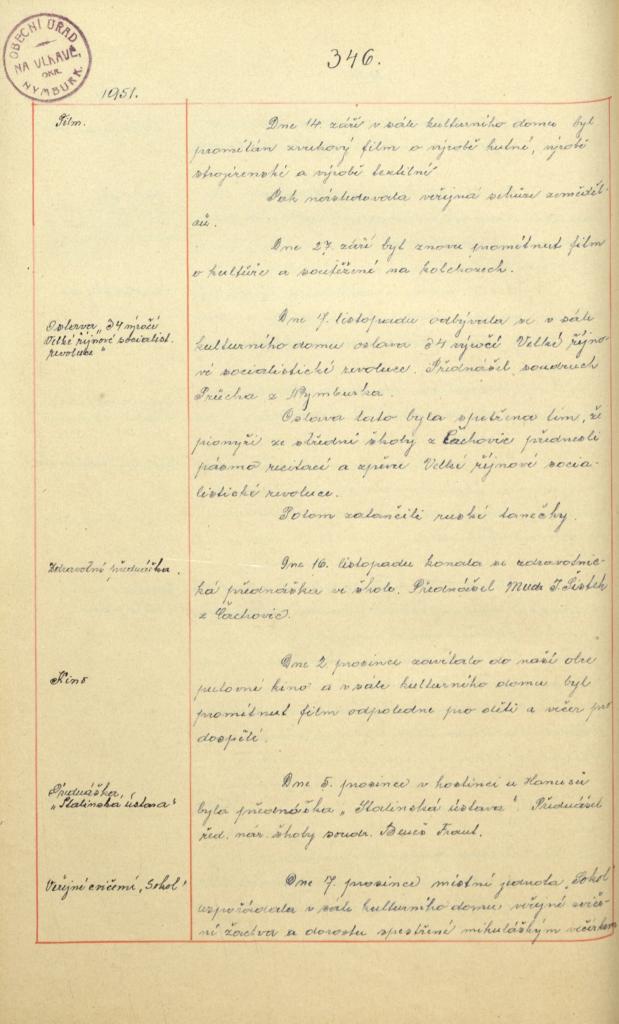 OBECNÍ ÚŘAD
NA VLKAVĚ,
OKR.
NYMBURK.
346.
1951.
Film.
Dne 14. září v sále kulturního domu byl
promítán zvukový film o výrobě hutné, výrobě
strojírenské a výrobě textilní
Pak následovala veřejná schůze zeměděl-
ců.
Dne 27. září byl znovu promítnut film
o kultuře a soutěžení na kolchozech.
Oslava „34 výročí
Velké říjnové socialist.
revoluce"
Dne 7. listopadu odbývala se v sále
kulturního domu oslava 34 výročí Velké říjno-
vé socialistické revoluce. Přednášel soudruh
Průcha z Nymburka.
Oslava tato byla zpestřena tím, že
pionýři ze střední školy z Čachovic přednesli
pásmo recitací a zpěvu Velké říjnové socia-
listické revoluce.
Potom zatančili ruské tanečky.
Zdravotní přednáška.
Dne 16. listopadu konala se zdravotnic-
ká přednáška ve škole. Přednášel Mudr J.
z Čachovic.
Kino
Dne 2 prosince zavítalo do naší obce
putovné kino a v sále kulturního domu byl
promítnut film odpoledne pro děti a večer pro
dospělé.
Přednáška,
„Stalinská ústava"
Dne 5. prosince v hostinci u Hanusů
byla přednáška „Stalinská ústava". Přednášel
řed. nár. školy soudr. Beneš Frant.
Veřejné cvičení „Sokol"
Dne 7. prosince místní jednota „Sokol"
uspořádala v sále kulturního domu veřejné cviče-
ní žactva a dorostu zpestřené mikulášským večírkem